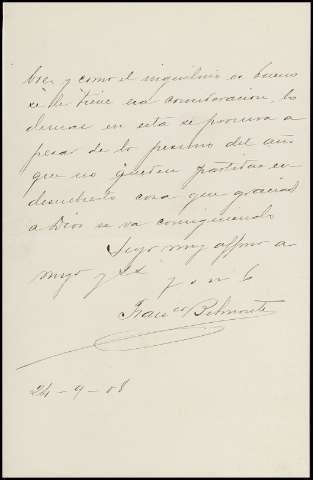 bre, y como el inquilino es bueno
se le tiene esa consideracion, lo
demas en esta se procura a
pesar de lo pesimo del año
que no queden partidas en
descubierto cosa que gracias
a Dios se va consiguiendo
Suyo muy affmo a
migo y SS q s m b
Franco Belmonte
24-9-08